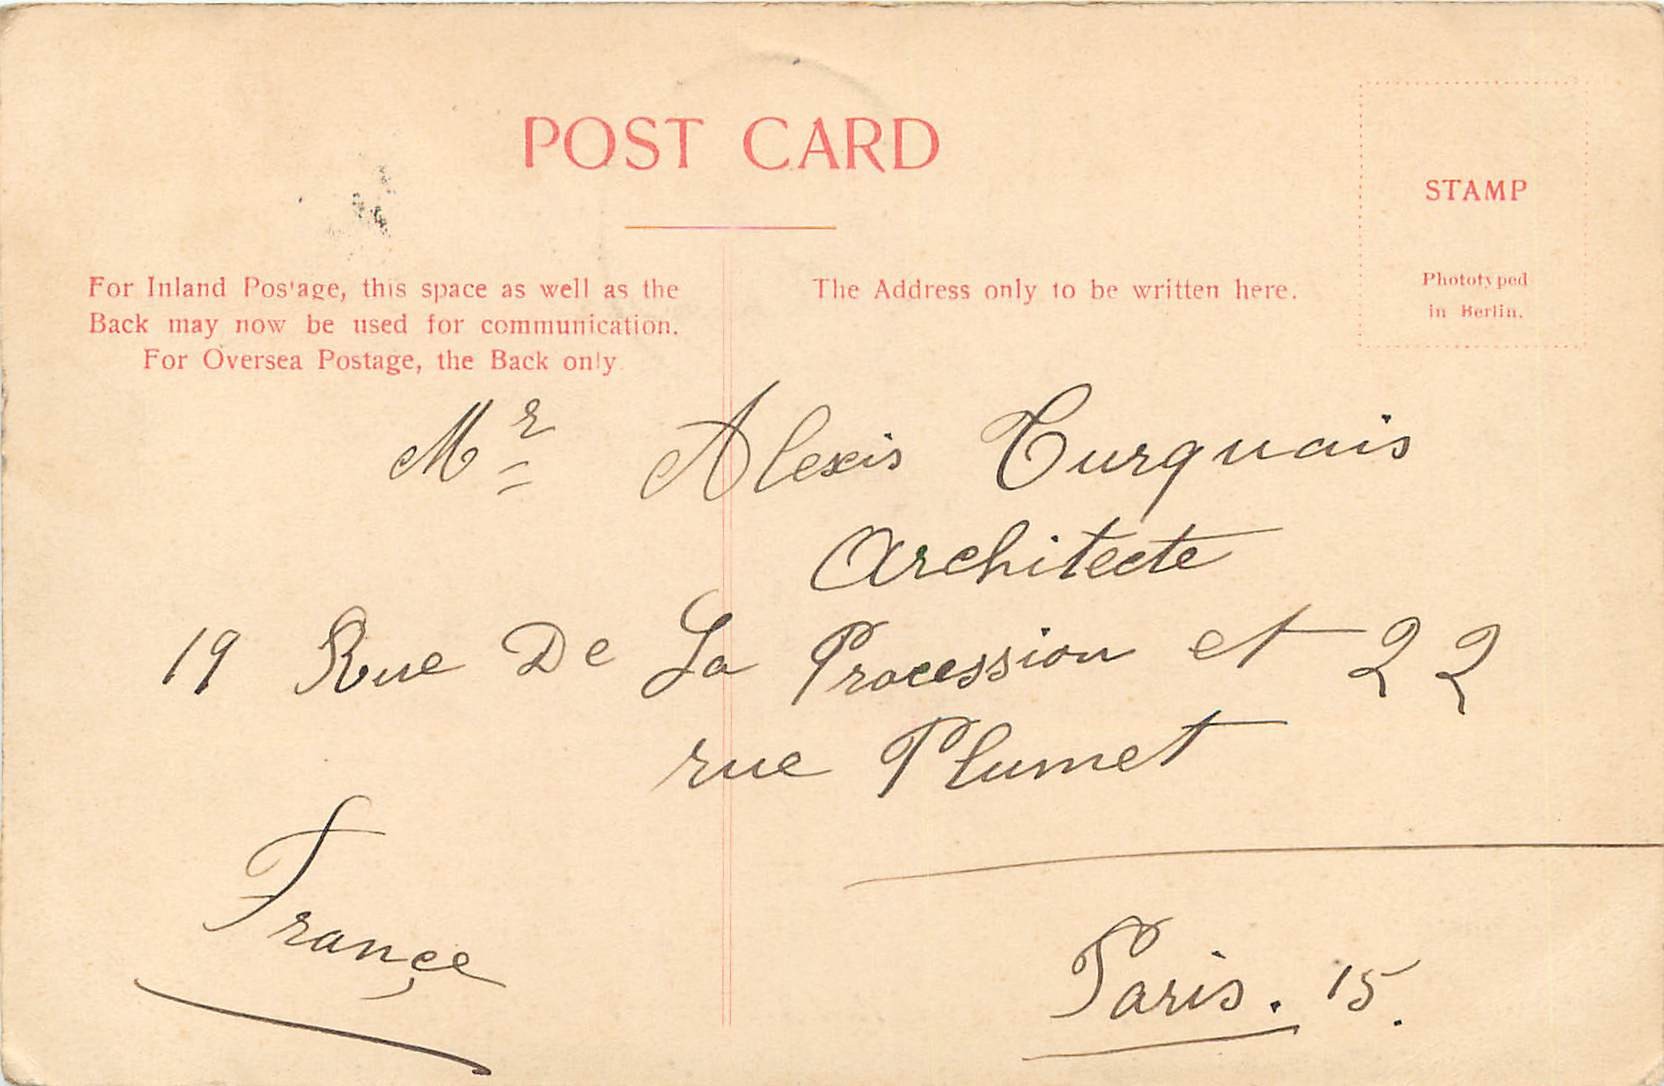 POST CARD
For Inland Postage, this space as well as the
Back may now be used for communication.
For Oversea Postage, the Back only.
The Address only to be written here.
STAMP
Phototyped
in Berlin.
Mr Alexis Turquais
Architecte
19 Rue De La Procession et 22
rue Plumet
Françe
Paris. 15.